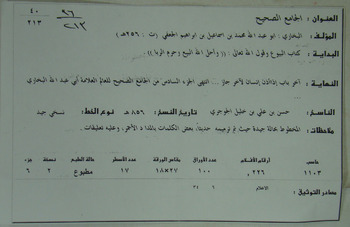 ٩٦
٢١٣
٤٠
٢١٣
العنوان : الجامع الصحيح
المؤلف : البخاري ; ابو عبد الله محمد بن اسماعيل بن ابراهيم الجعفي (ت : ٢٥٦هـ)
البداية : كتاب البيوع وقول الله تعالى : (( وأحل الله البيع وحرم الربا )) .
النهاية : آخر باب إذا أذن إنسان لآخر جاز ... انتهى الجزء السادس من الجامع الصحيح للعالم العلامة أبي عبد الله البخاري
الناسخ : حسن بن علي بن خليل الجوجري تاريخ النسخ : ٨٥٦هـ نوع الخط : نسخي جيد
ملاحظات : المخطوط بحالة جيدة حيث تم ترميمه حديثا، بعض الكلمات بالمداد الأحمر، وعليه تعليقات .
خاص أرقام الأفلام عدد الأوراق مقاس الورقة عدد الأسطر حالة الطبع نسخة جزء
١١٠٣ ٢٢٦ ١٠٠ ٢٧×١٨ ١٧ مطبوع ٢ ٦
مصادر التوثيق : الاعلام ٦ ٣٤